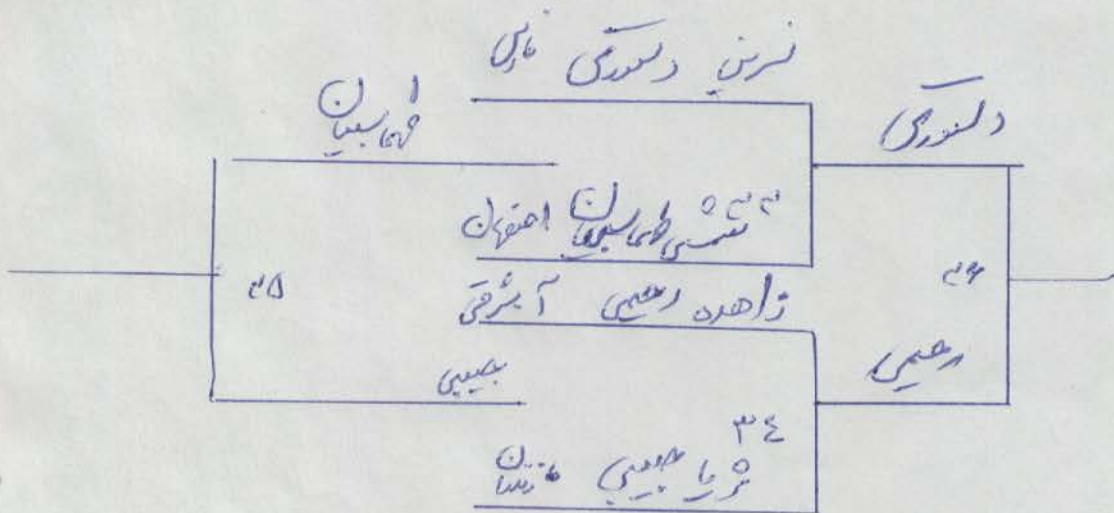 نسرین دلسوزی فارس
طهماسبیان
دلسوزی
۳۳
شمسی طهماسبیان اصفهان
زاهده رحیمی آ شرقی
۳۵
۳۶
رحیمی
حبیبی
۳٤
ثریا حبیبی مازندران